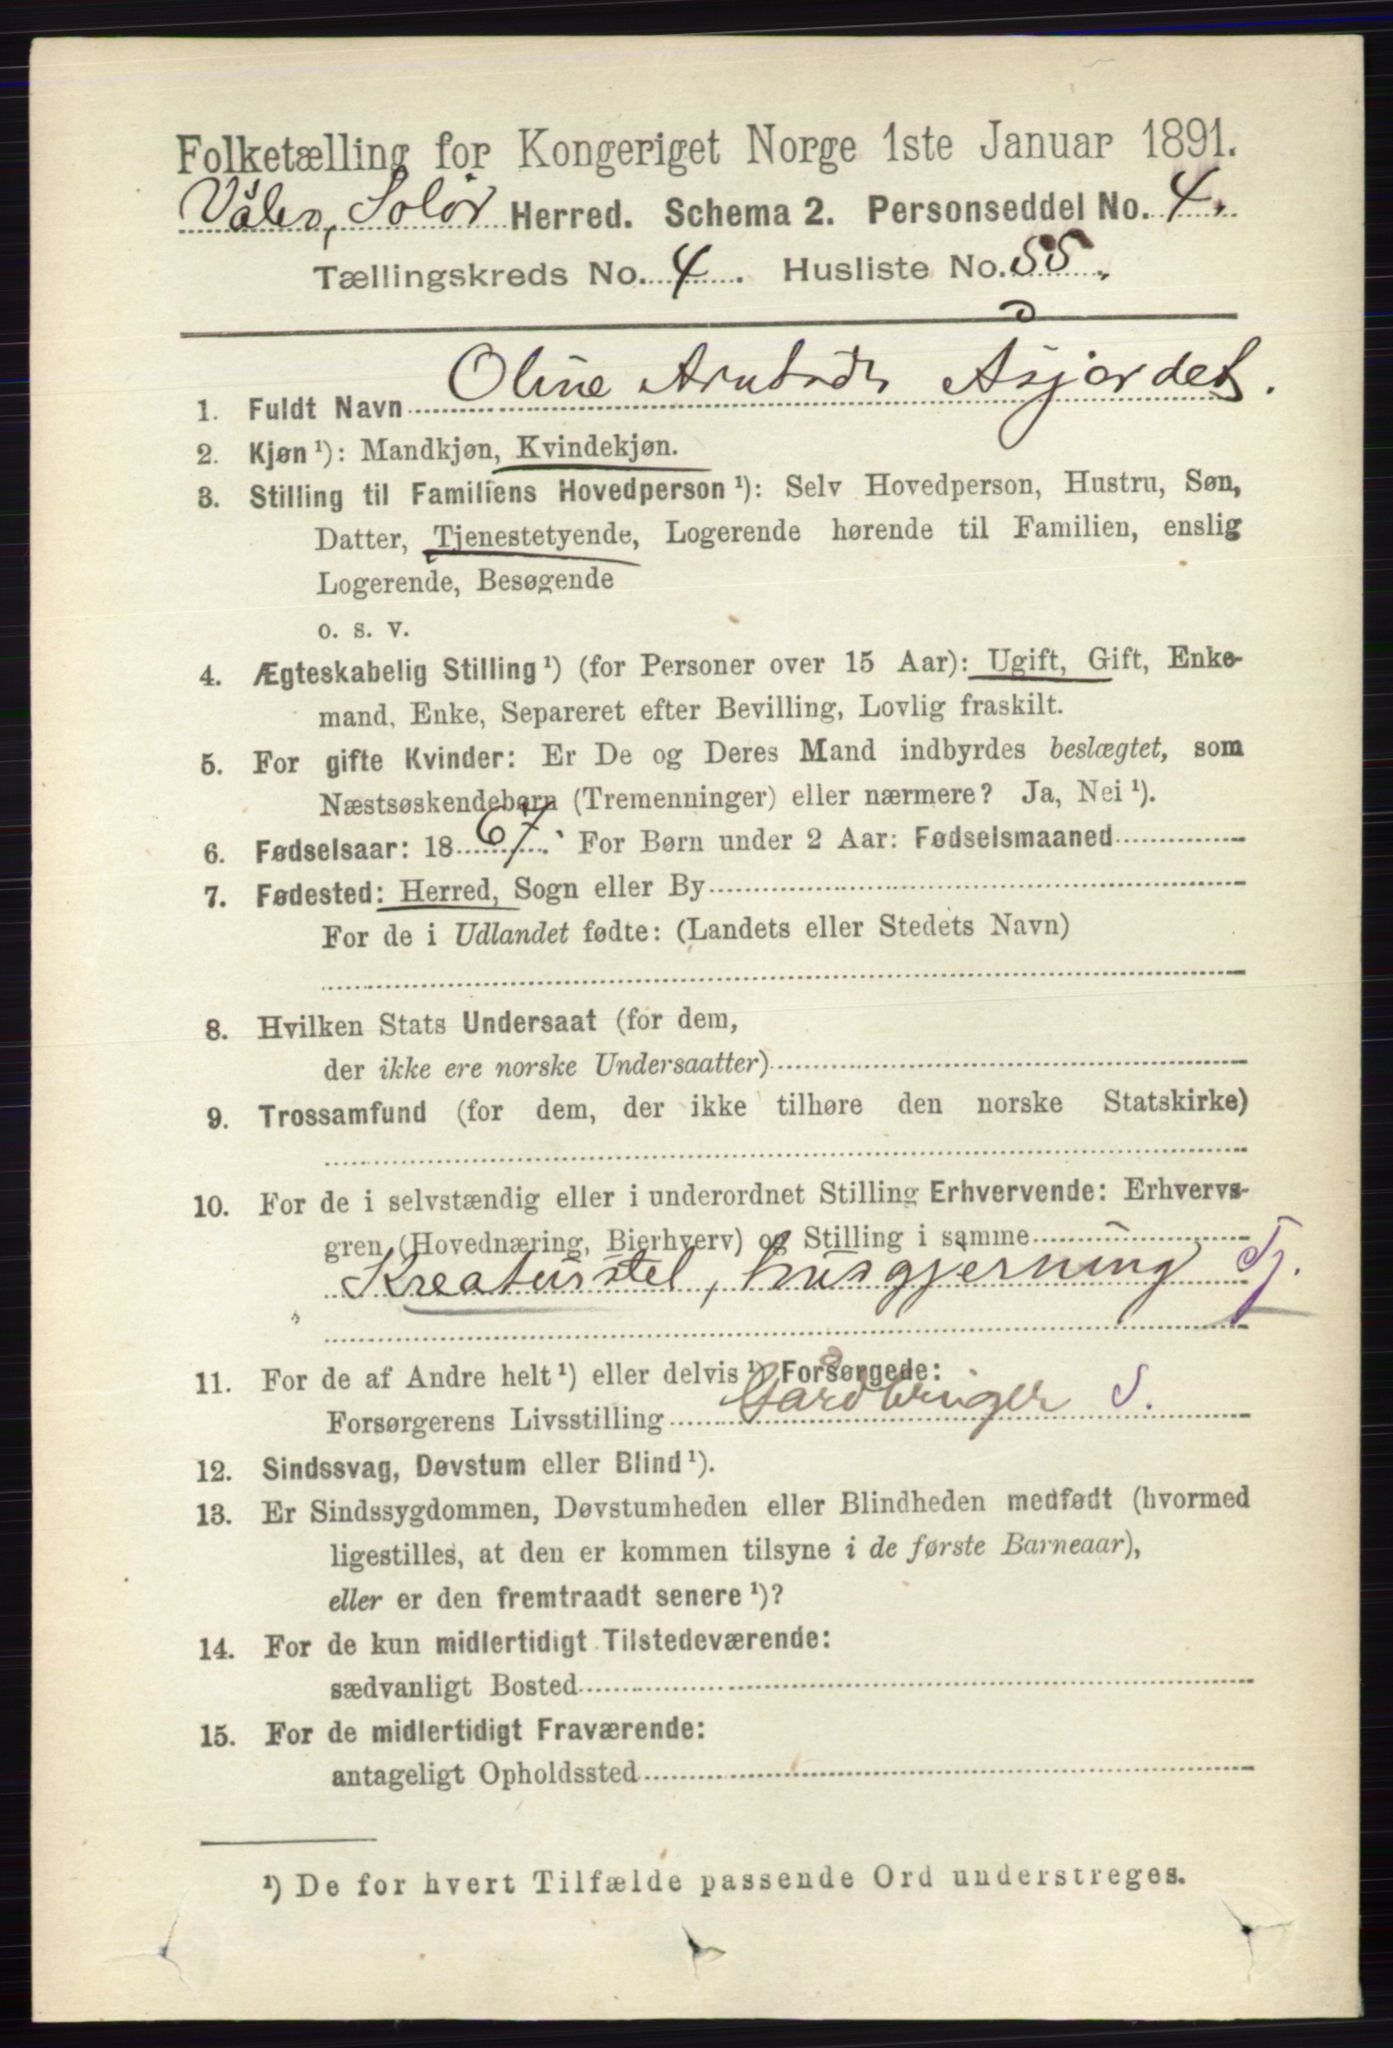 Folketælling for Kongeriget Norge 1ste Januar 1891.
Våler, Solør Herred. Schema 2. Personseddel No. 4.
Tællingskreds No. 4. Husliste No. 55.
1. Fuldt Navn Oline Åsjordet.
2. Kjøn¹): Mandkjøn, Kvindekjøn.
3. Stilling til Familiens Hovedperson¹): Selv Hovedperson, Hustru, Søn,
Datter, Tjenestetyende, Logerende hørende til Familien, enslig
Logerende, Besøgende
o. s. v.
4. Ægteskabelig Stilling¹) (for Personer over 15 Aar): Ugift, Gift, Enke-
mand, Enke, Separeret efter Bevilling, Lovlig fraskilt.
5. For gifte Kvinder: Er De og Deres Mand indbyrdes beslægtet, som
Næstsøskendebørn (Tremenninger) eller nærmere? Ja, Nei¹).
6. Fødselsaar: 1867. For Børn under 2 Aar: Fødselsmaaned
7. Fødested: Herred, Sogn eller By
For de i Udlandet fødte: (Landets eller Stedets Navn)
8. Hvilken Stats Undersaat (for dem,
der ikke ere norske Undersaatter)
9. Trossamfund (for dem, der ikke tilhøre den norske Statskirke)
10. For de i selvstændig eller i underordnet Stilling Erhvervende: Erhvervs-
gren (Hovednæring, Bierhverv) og Stilling i samme
Kreaturstel, husgjerning Tj.
11. For de af Andre helt¹) eller delvis¹) Forsørgede:
Forsørgerens Livsstilling Gårdbruger S.
12. Sindssvag, Døvstum eller Blind¹).
13. Er Sindssygdommen, Døvstumheden eller Blindheden medfødt (hvormed
ligestilles, at den er kommen tilsyne i de første Barneaar),
eller er den fremtraadt senere¹)?
14. For de kun midlertidigt Tilstedeværende:
sædvanligt Bosted
15. For de midlertidigt Fraværende:
antageligt Opholdssted
¹) De for hvert Tilfælde passende Ord understreges.